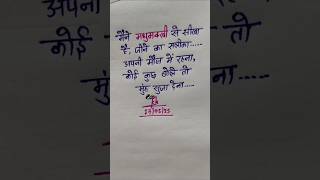 मैंने मधुमक्खी से सीखा
है, जीने का सलीका.....
अपनी मौज में रहना,
कोई कुछ बोले तो
मुंह सुजा देना....
अपना
कोई
तो